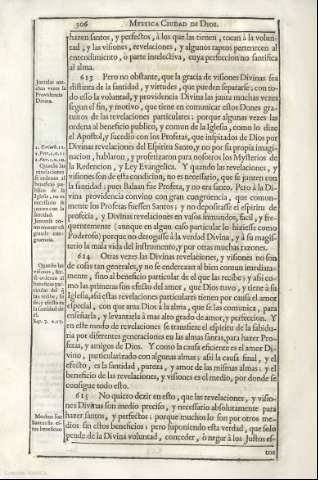 306 MYSTICA CIUDAD DE DIOS.
hazen santos, y perfectos, à los que las tienen, tocan à la volun-
tad, y las visiones, revelaciones, y algunos raptos pertenecen al
entendimiento, ò parte intelectiva, cuya perfeccion no santifica
al alma.
613 Pero no obstante, que la gracia de visiones Divinas sea
distinta de la santidad, y virtudes, que pueden separarse; con to-
do esso la voluntad, y providencia Divina las junta muchas vezes
segun el fin, y motivo, que tiene en comunicar estos Dones gra-
tuitos de las revelaciones particulares; porque algunas vezes las
ordena al beneficio publico, y comun de la Iglesia, como lo dize
el Apostol, y sucediò con los Profetas, que inspirados de Dios por
Divinas revelaciones del Espiritu Santo, y no por su propia imagi-
nacion, hablaron, y profetizaron para nosotros los Mysterios de
la Redencion, y Ley Evangelica. Y quando las revelaciones, y
visiones son de esta condicion, no es necessario, que se junten con
la santidad; pues Balaan fue Profeta, y no era santo. Pero à la Di-
vina providencia convino con gran congruencia, que comun-
mente los Profetas fuessen Santos; y no depositasse el espiritu de
profecia, y Divinas revelaciones en vasos inmundos, facil, y fre-
quentemente (aunque en algun caso particular lo hiziesse como
Poderoso) porque no derogasse à la verdad Divina, y à su magis-
terio la mala vida del instrumento, y por otras muchas razones.
614 Otras vezes las Divinas revelaciones, y visiones no son
de cosas tan generales, y no se enderezan al bien comun inmediata-
mente, sino al beneficio particular de el que las recibe; y assi co-
mo las primeras son efecto del amor, que Dios tuvo, y tiene à su
Iglesia, assi estas revelaciones particulares tienen por causa el amor
especial, con que ama Dios à la alma, que se las comunica, para
enseñarla, y levantarla à mas alto grado de amor, y perfeccion. Y
en este modo de revelaciones se transfiere el espiritu de la sabidu-
ria por diferentes generaciones en las almas santas, para hazer Pro-
fetas, y amigos de Dios. Y como la causa eficiente es el amor Di-
vino, particularizado con algunas almas; assi la causa final, y el
efecto, es la santidad, pureza, y amor de las mismas almas; y el
beneficio de las revelaciones, y visiones es el medio, por donde se
consigue todo esto.
615 No quiero dezir en esto, que las revelaciones, y visio-
nes Divinas son medio preciso, y necessario absolutamente para
hazer santos, y perfectos; porque muchos lo son por otros me-
dios sin estos beneficios; pero suponiendo esta verdad, que solo
pende de la Divina voluntad, conceder, ò negar à los Justos es-
tos
Juntalas mu-
chas vezes la
Providencia
Divina.
Quando las
revelaciones
se ordenan al
beneficio pu-
blico de la
Iglesia, no es
necessario se
junten con la
santidad.
Quando las
visiones, &c.
se ordenan al
beneficio par-
ticular del q̃
las recibe, su
fin, y efecto es
la santidad de
Sap. 7. v. 27.
Muchos son
Santos sin es-
tos beneficios